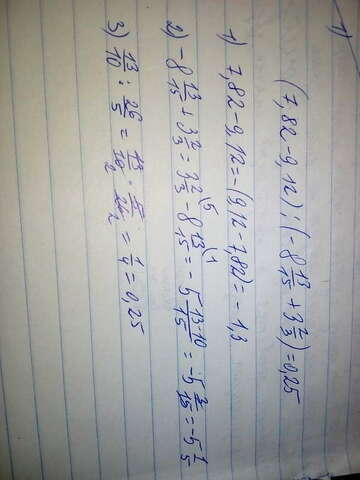 1)
(7,82-9,12):(-8 13/15 + 3 2/3)=0,25
1) 7,82-9,12=-(9,12-7,82)=-1,3
2) -8 13/15 + 3 2/3 = 3 2/3 \5 - 8 13/15 \1 = -5 13-10/15 = -5 3/15 = -5 1/5
3) 13/10 : 26/5 = 13/10 2 · 5/26 2 = 1/4 = 0,25